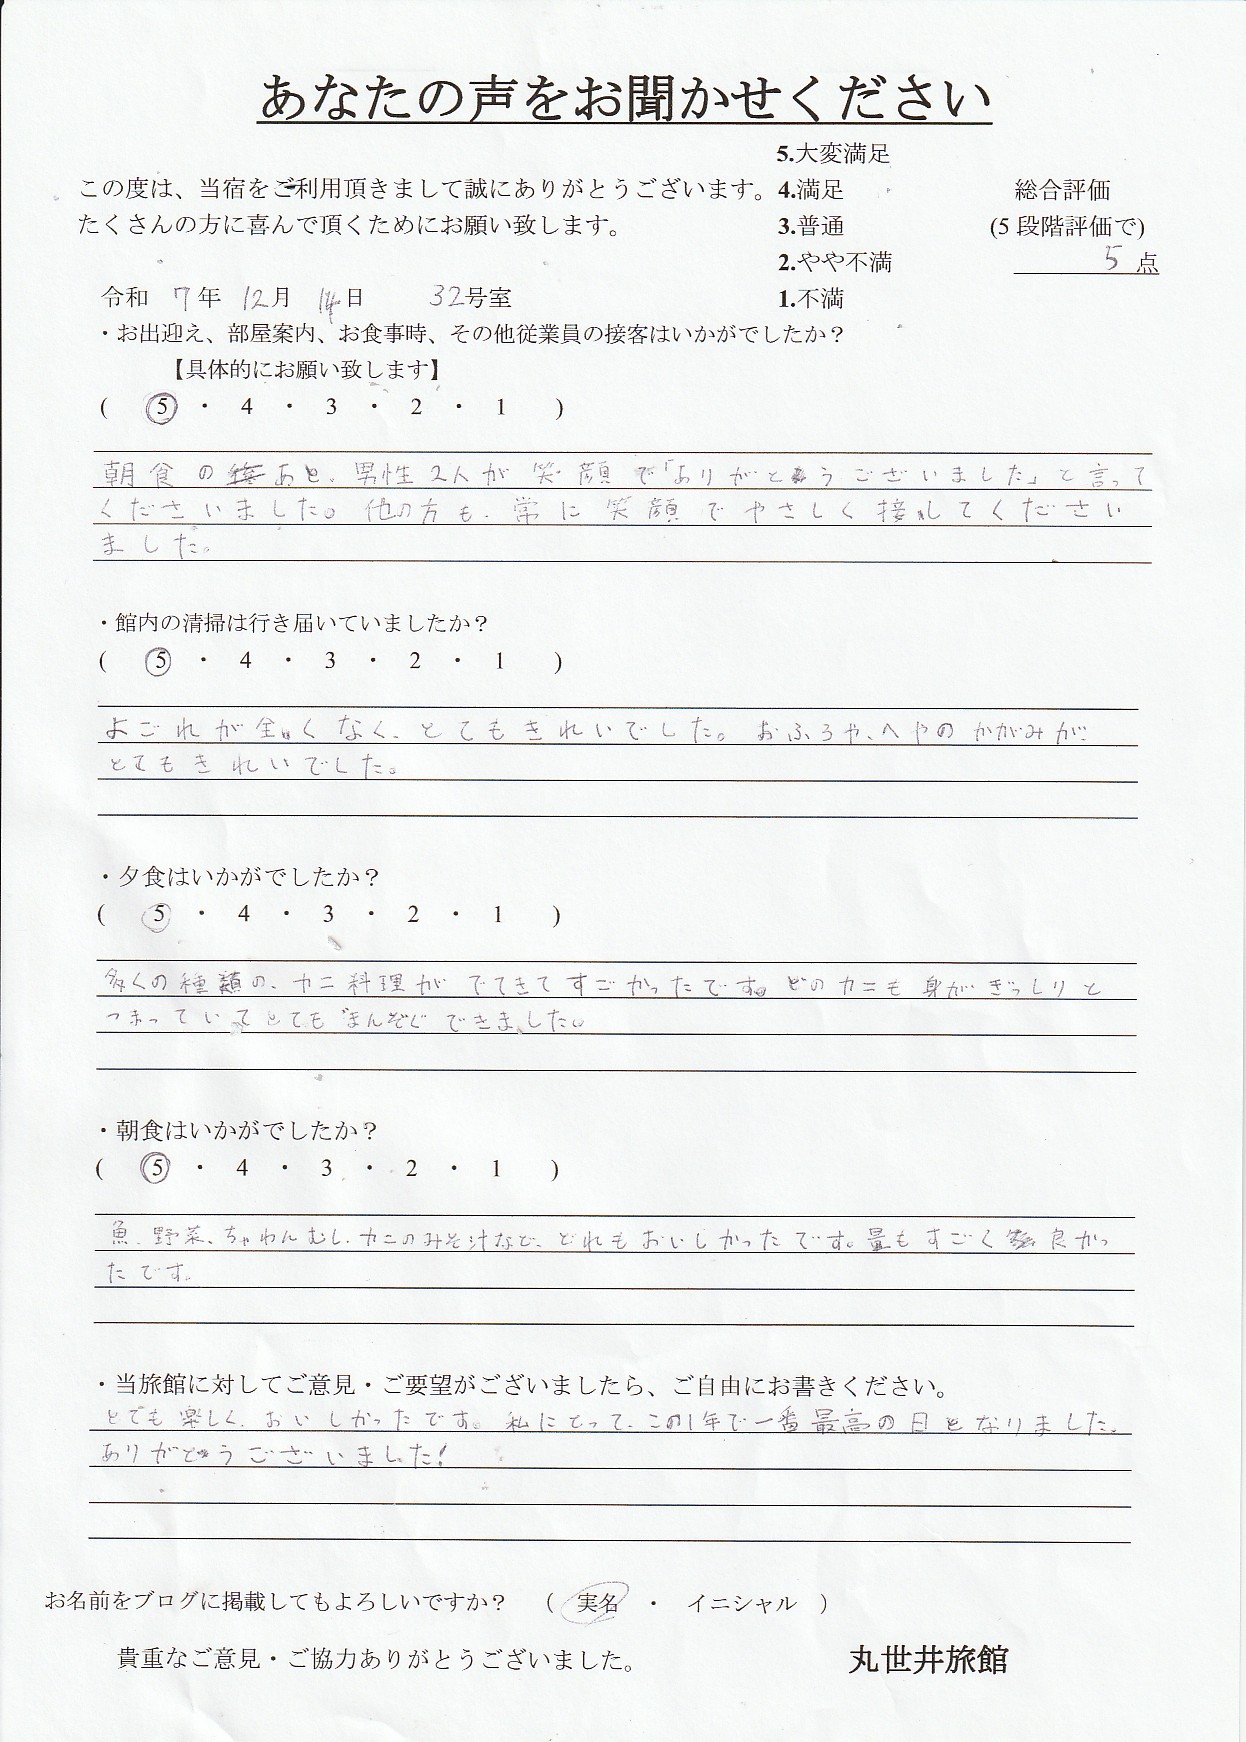 あなたの声をお聞かせください
5.大変満足
この度は、当宿をご利用頂きまして誠にありがとうございます。 4.満足 総合評価
たくさんの方に喜んで頂くためにお願い致します。 3.普通 (5段階評価で)
2.やや不満 5 点
令和 7年 12月 14日 32号室 1.不満
・お出迎え、部屋案内、お食事時、その他従業員の接客はいかがでしたか？
【具体的にお願い致します】
( 5 ・ 4 ・ 3 ・ 2 ・ 1 )
朝食のあと、男性2人が笑顔で「ありがとうございました」と言って
くださいました。他の方も、常に笑顔でやさしく接してください
ました。
・館内の清掃は行き届いていましたか？
( 5 ・ 4 ・ 3 ・ 2 ・ 1 )
よごれが全くなく、とてもきれいでした。おふろや、へやのかがみが
とてもきれいでした。
・夕食はいかがでしたか？
( 5 ・ 4 ・ 3 ・ 2 ・ 1 )
多くの種類の、カニ料理がでてきてすごかったです。どのカニも身がぎっしりと
つまっていてとてもまんぞくできました。
・朝食はいかがでしたか？
( 5 ・ 4 ・ 3 ・ 2 ・ 1 )
魚、野菜、ちゃわんむし、カニのみそ汁など、どれもおいしかったです。量もすごく良かっ
たです。
・当旅館に対してご意見・ご要望がございましたら、ご自由にお書きください。
とても楽しく、おいしかったです。私にとって、この1年で一番最高の日となりました。
ありがとうございました!
お名前をブログに掲載してもよろしいですか？ ( 実名 ・ イニシャル )
貴重なご意見・ご協力ありがとうございました。 丸世井旅館